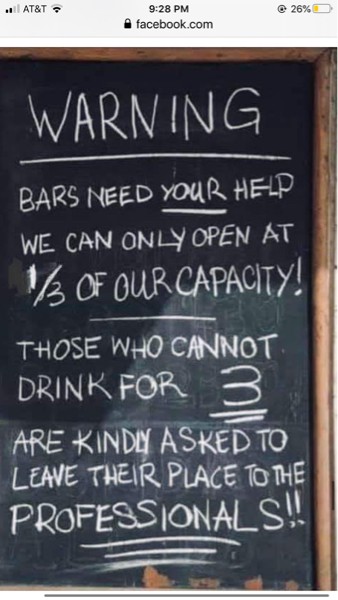 AT&T
9:28 PM
26%
facebook.com
WARNING
BARS NEED YOUR HELP
WE CAN ONLY OPEN AT
1/3 OF OUR CAPACITY!
THOSE WHO CANNOT
DRINK FOR 3
ARE KINDLY ASKED TO
LEAVE THEIR PLACE TO THE
PROFESSIONALS!!